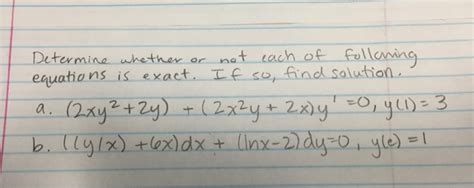 Determine whether or not each of following
equations is exact. If so, find solution.
a. (2xy²+2y) + (2x²y + 2x)y' = 0, y(1) = 3
b. ((y/x) + 6x)dx + (lnx-2)dy=0, y(e) = 1